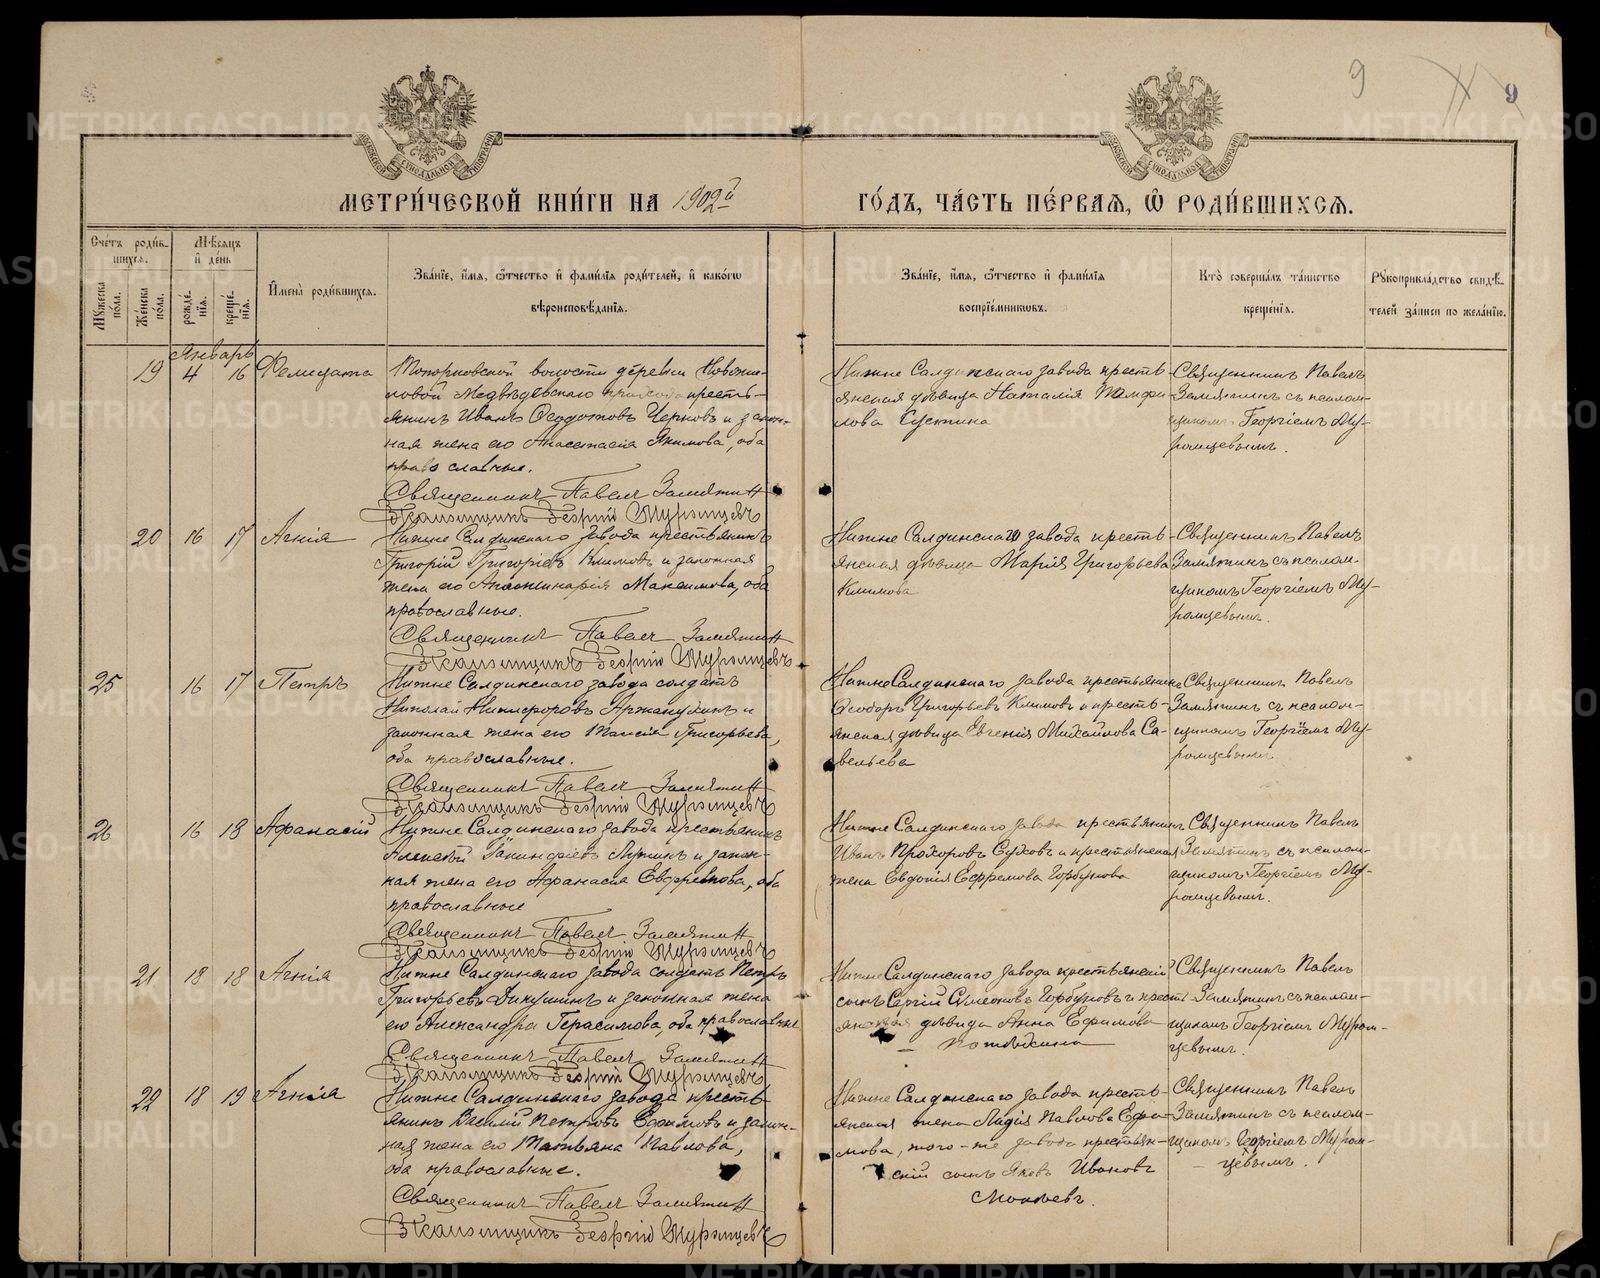 9
9
МЕТРИ́ЧЕСКОЙ КНИ́ГИ НА 1902й
ГО́ДЪ, ЧА́СТЬ ПЕ́РВАЯ, Ѿ РОДИ́ВШИХСЯ.
Сче́тъ роди́в-
шихся.
Мѣ́сяцъ
и̓ де́нь
Му́жеска
по́ла.
Же́нска
по́ла.
рожде́-
нїя.
креще́-
нїя.
И̓мена̀ роди́вшихся.
Зва́нїе, и̓́мя, ѻ҆́тчество и̓ фами́лїя роди́телей, и̓ како́гѡ
вѣроисповѣ́данїя.
Зва́нїе, и̓́мя, ѻ҆́тчество и̓ фами́лїя
воспрїе́мниковъ.
Кто̀ соверша́лъ та́инство
креще́нїя.
Рꙋкоприкла́дство свидѣ́-
телей за́писи по жела́нїю.
Январь
19 4 16 Фелицата
Топорковской волости деревни Новоши-
ловой Медвѣдевскаго прихода кресть-
янинъ Иванъ Ѳедотовъ Черновъ и закон-
ная жена его Анастасія Якимова, оба
православные.
Священникъ Павелъ Замятин
Псаломщикъ Георгій Муромцевъ
Нижне Салдинскаго завода кресть-
янская дѣвица Наталія
лова Сустина
Священникъ Павелъ
Замятинъ съ псалом-
щикомъ Георгіемъ Му-
ромцевымъ.
20 16 17 Агнія
Нижне Салдинскаго завода крестьянинъ
Григорій Григорьевъ Климовъ и законная
жена его Апполинарія Максимова, оба
православные.
Священникъ Павелъ Замятин
Псаломщикъ Георгій Муромцевъ
Нижне Салдинскаго завода кресть-
янская дѣвица Марія Григорьева
Климова
Священникъ Павелъ
Замятинъ съ псалом-
щикомъ Георгіемъ Му-
ромцевымъ.
25 16 17 Петръ
Нижне Салдинскаго завода солдатъ
Николай Никифоровъ Аржанухинъ и
законная жена его Таисія Григорьева,
оба православные.
Священникъ Павелъ Замятин
Псаломщикъ Георгій Муромцевъ
Нижне Салдинскаго завода крестьянинъ
Ѳеодоръ Григорьевъ Климовъ и кресть-
янская дѣвица Евгенія Михайлова Са-
вельева
Священникъ Павелъ
Замятинъ съ псалом-
щикомъ Георгіемъ Му-
ромцевымъ.
26 16 18 Афанасій
Нижне Салдинскаго завода крестьянинъ
Алексѣй Іакинфіевъ Лупинъ и закон-
ная жена его Афанасія Евфремова, оба
православные
Священникъ Павелъ Замятин
Псаломщикъ Георгій Муромцевъ
Нижне Салдинскаго завода крестьянинъ
Иванъ Прохоровъ Суховъ и крестьянская
жена Евдокія Ефремова Горбунова
Священникъ Павелъ
Замятинъ съ псалом-
щикомъ Георгіемъ Му-
ромцевымъ.
21 18 18 Агнія
Нижне Салдинскаго завода солдатъ Петръ
Григорьевъ Дикушинъ и законная жена
его Александра Герасимова, оба православные
Священникъ Павелъ Замятин
Псаломщикъ Георгій Муромцевъ
Нижне Салдинскаго завода крестьянскій
сынъ Сергій Симеоновъ Горбуновъ и кресть-
янская дѣвица Анна Ефимова
Потѣхина
Священникъ Павелъ
Замятинъ съ псалом-
щикомъ Георгіемъ Муром-
цевымъ.
22 18 19 Агнія
Нижне Салдинскаго завода кресть-
янинъ Василій Петровъ Ефимовъ и закон-
ная жена его Татьяна Павлова,
оба православные.
Священникъ Павелъ Замятин
Псаломщикъ Георгій Муромцевъ
Нижне Салдинскаго завода кресть-
янская жена Лидія Павлова Ефи-
мова, того-же завода крестьян-
скій сынъ Яковъ Ивановъ
Мокѣевъ.
Священникъ Павелъ
Замятинъ съ псалом-
щикомъ Георгіемъ Муром-
цевымъ.
METRIKI.GASO-URAL.RU